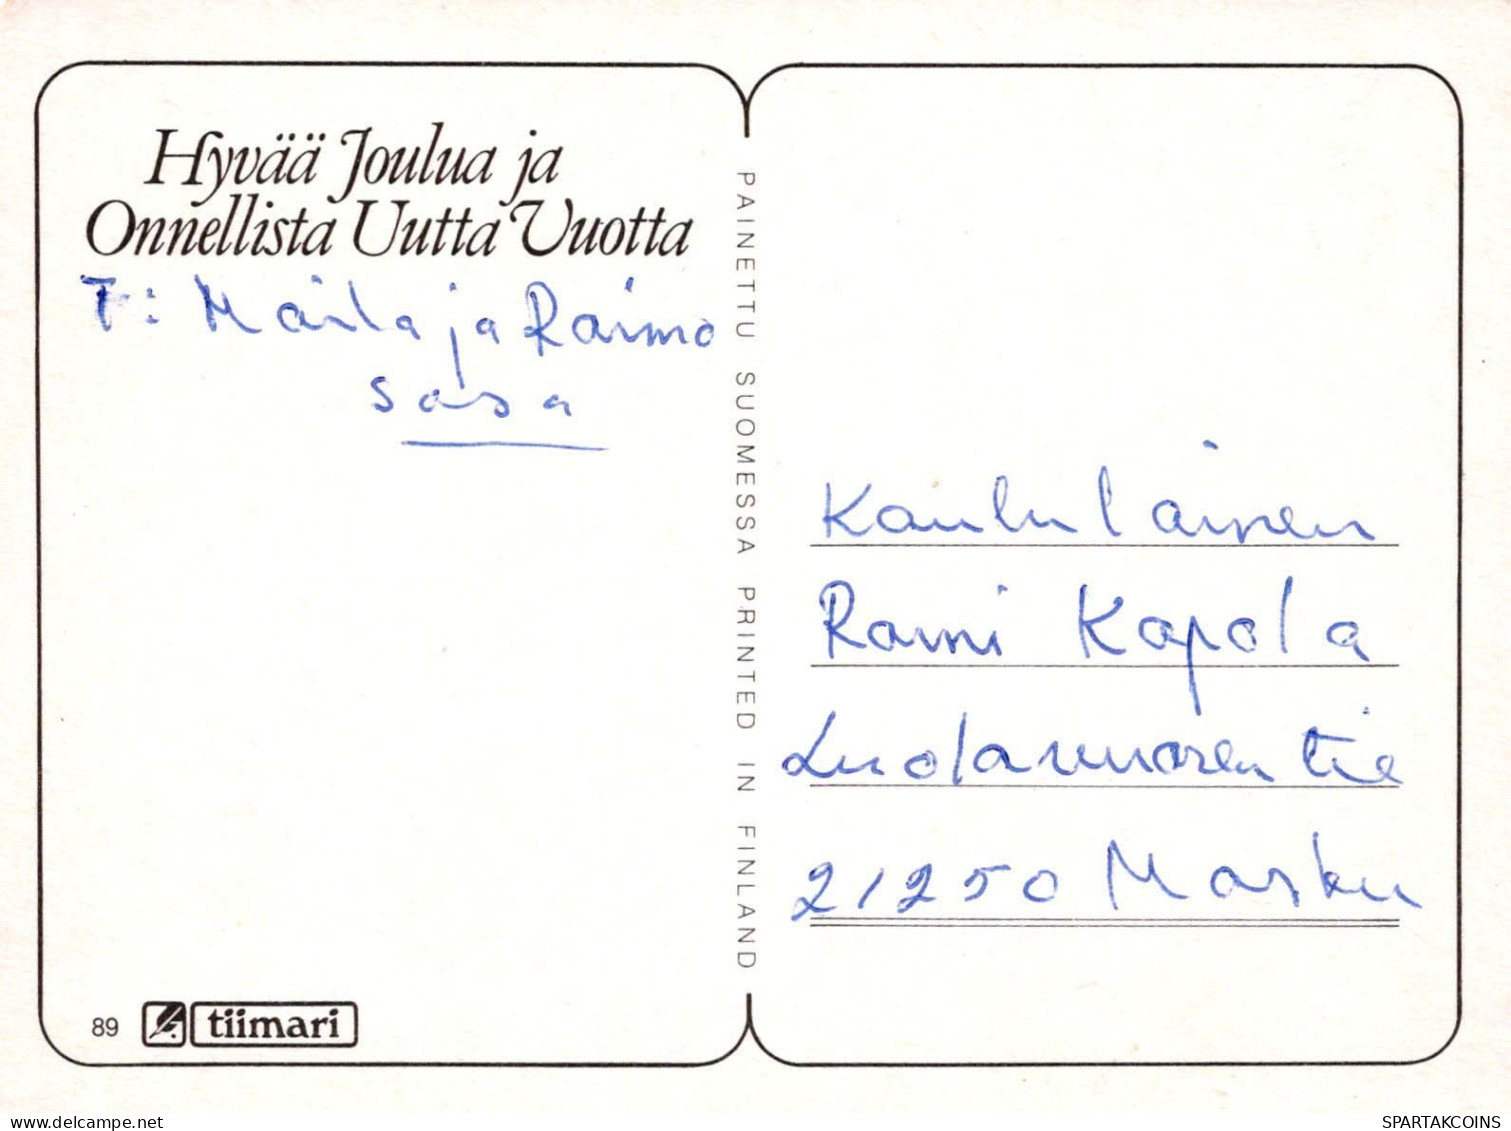 Hyvää Joulua ja
Onnellista Uutta Vuotta
T: Maila ja Raimo
Sasa
PAINETTU SUOMESSA PRINTED IN FINLAND
Raimi Kapola
Luolavuoren tie
21250 Masku
89 tiimari
www.delcampe.net
SPARTAKCOINS